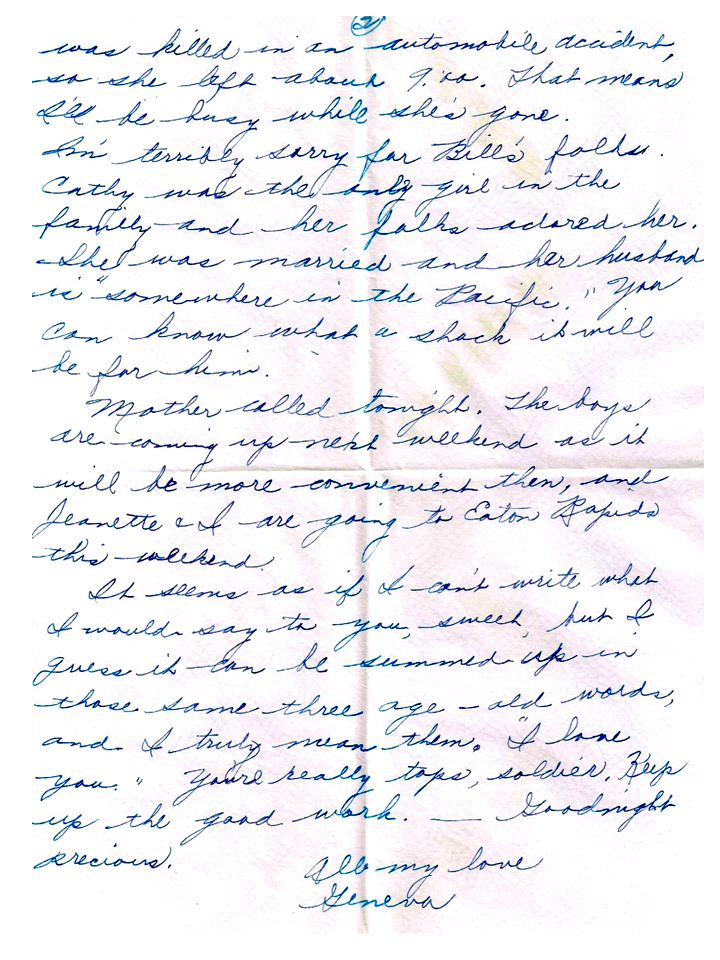 2
was killed in an automobile accident,
so she left about 9:00. That means
I'll be busy while she's gone.
I'm terribly sorry for Bill's folks.
Cathy was the only girl in the
family and her folks adored her.
She was married and her husband
is "somewhere in the Pacific." You
can know what a shock it will
be for him.
Mother called tonight. The boys
are coming up next weekend as it
will be more convenient then, and
Jeanette & I are going to Eaton Rapids
this weekend.
It seems as if I can't write what
I would say to you, sweet, but I
guess it can be summed up in
those same three age-old words,
and I truly mean them. "I love
you." You're really tops, soldier. Keep
up the good work. — Goodnight
precious.
All my love
Geneva